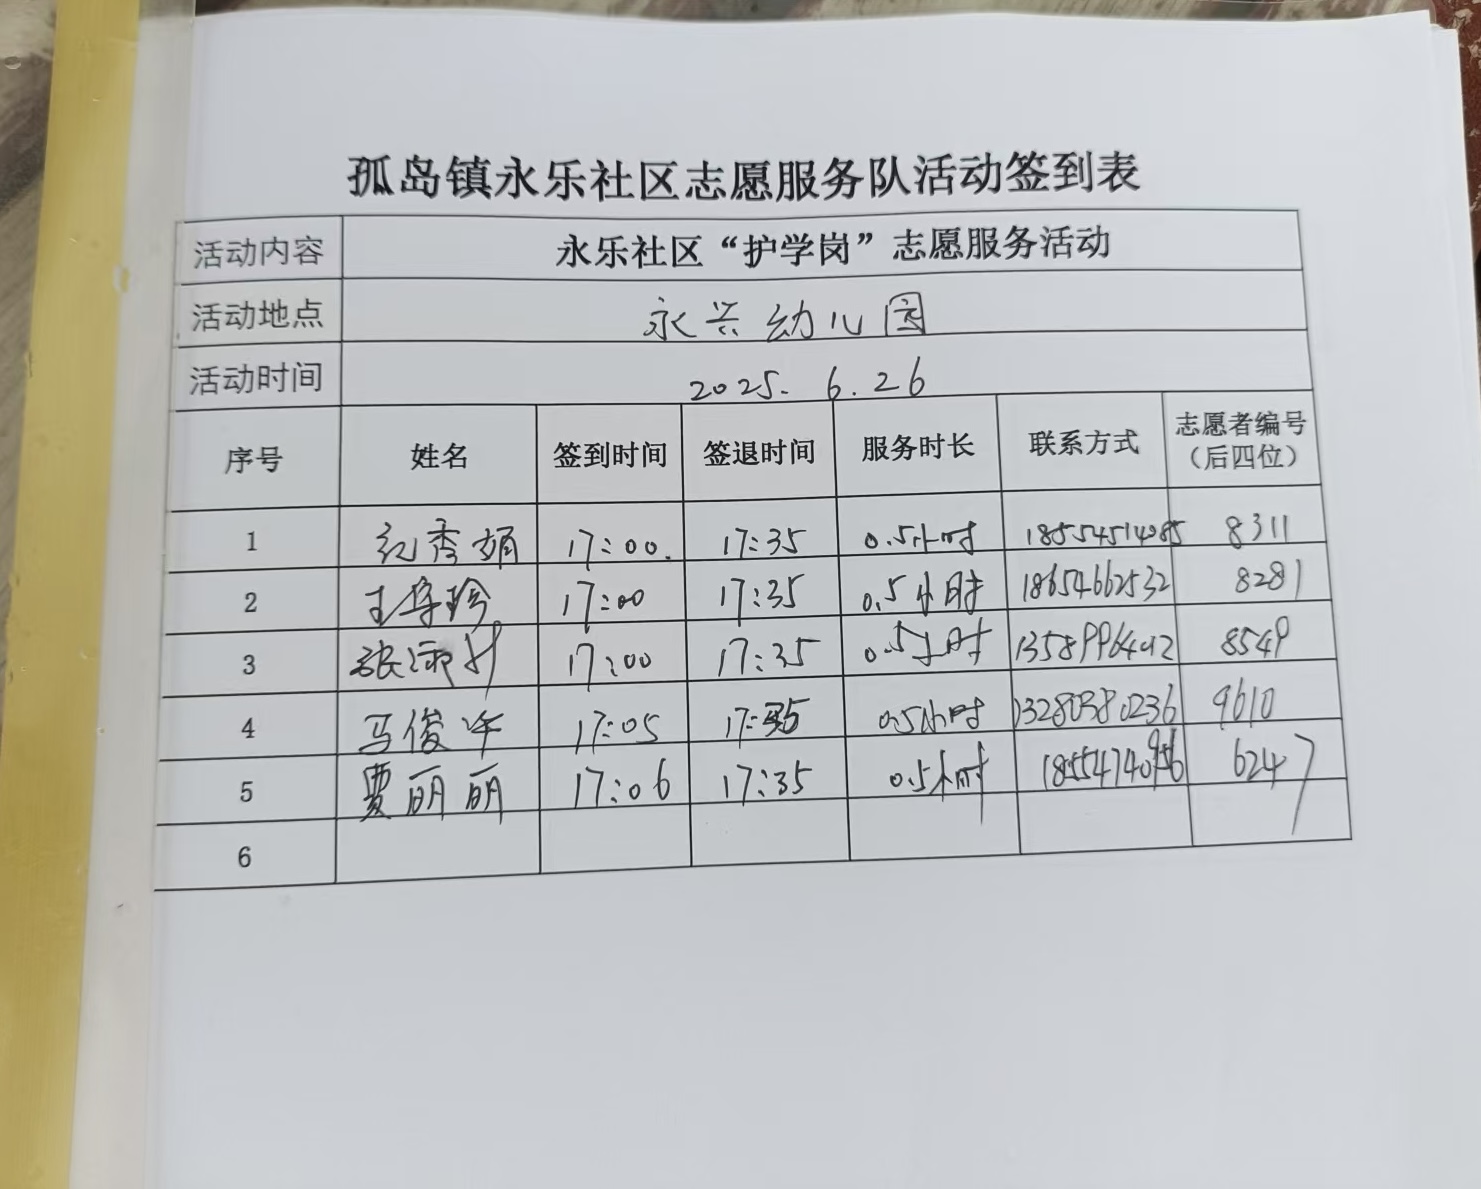 孤岛镇永乐社区志愿服务队活动签到表
活动内容 永乐社区“护学岗”志愿服务活动
活动地点 永兴幼儿园
活动时间 2025.6.26
序号 姓名 签到时间 签退时间 服务时长 联系方式 志愿者编号（后四位）
1 纪秀娟 17:00. 17:35 0.5小时 18554514085 8311
2 17:00 17:35 0.5小时 18654662532 8281
3 17:00 17:35 0.5小时 8549
4 马俊 17:05 17:35 0.5小时 13280380236 9610
5 贾丽丽 17:06 17:35 0.5小时 6247
6